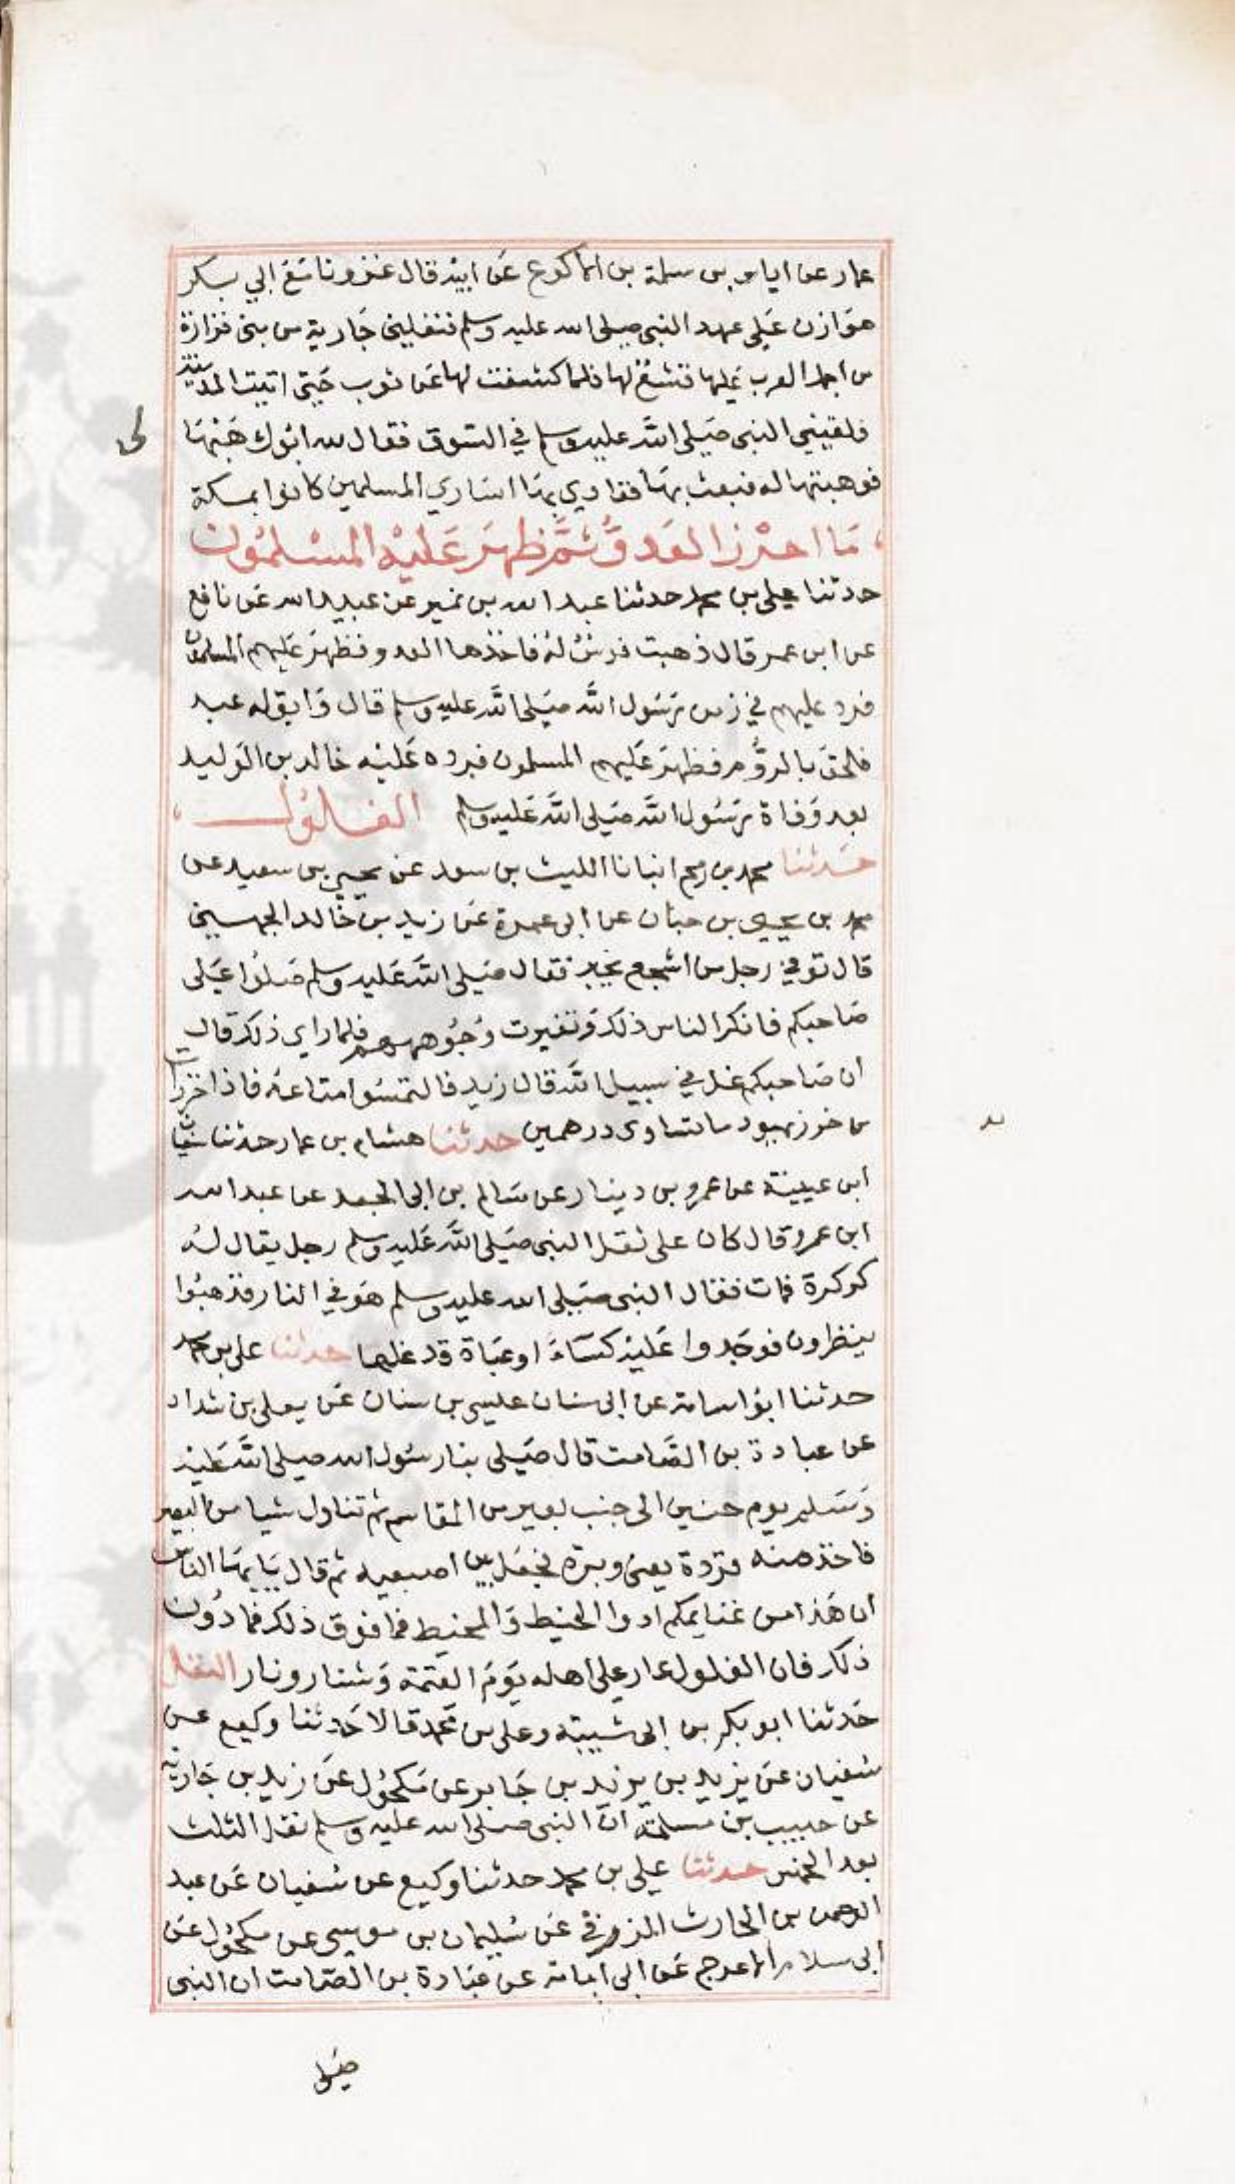 عمار عن اياس بن سلمة بن الاكوع عن ابيه قال غزونا مع ابي بكر
هوازن على عهد النبي صلى الله عليه وسلم فنفلني جارية من بني فزارة
من اجمل العرب عليها قشع لها فلما كشفت لها عن ثوب حتى اتيت المدينة
فلقيني النبي صلى الله عليه وسلم في السوق فقال لله ابوك هبها
لي
فوهبتها له فبعث بها ففادي بها اساري المسلمين كانوا بمكة
ما احرز العدو ثم ظهر عليه المسلمون
حدثنا علي بن محمد حدثنا عبد الله بن نمير عن عبيد الله عن نافع
عن ابن عمر قال ذهبت فرس له فاخذها العدو فظهر عليهم المسلمون
فرد عليهم في زمن رسول الله صلى الله عليه وسلم قال وابق له عبد
فلحق بالروم فظهر عليهم المسلمون فرده عليه خالد بن الوليد
بعد وفاة رسول الله صلى الله عليه وسلم الغلول
حدثنا محمد بن رمح انبانا الليث بن سعد عن يحيى بن سعيد عن
محمد بن يحيى بن حبان عن ابي عمرة عن زيد بن خالد الجهني
قال توفي رجل من اشجع بخيبر فقال صلى الله عليه وسلم صلوا على
صاحبكم فانكر الناس ذلك وتغيرت وجوههم فلما راي ذلك قال
ان صاحبكم غل في سبيل الله قال زيد فالتمسوا متاعه فاذا خرزات
من خرز يهود ما تساوى درهمين حدثنا هشام بن عمار حدثنا سفيان
ابن عيينة عن عمرو بن دينار عن سالم بن ابي الجعد عن عبد الله
ابن عمرو قال كان على ثقل النبي صلى الله عليه وسلم رجل يقال له
كركرة فمات فقال النبي صلى الله عليه وسلم هو في النار فذهبوا
ينظرون فوجدوا عليه كساء او عباة قد غلها حدثنا علي بن محمد
حدثنا ابو اسامة عن ابي سنان عيسى بن سنان عن يعلى بن شداد
عن عبادة بن الصامت قال صلى بنا رسول الله صلى الله عليه
وسلم يوم حنين الى جنب بعير من المقاسم ثم تناول شيا من البعير
فاخذ منه قردة يعني وبرة فجعل بين اصبعيه ثم قال يايها الناس
ان هذا من غنايمكم ادوا الخيط والمخيط فما فوق ذلك فما دون
ذلك فان الغلول عار على اهله يوم القيمة وشنار ونار النفل
حدثنا ابو بكر بن ابي شيبة وعلي بن محمد قالا حدثنا وكيع عن
سفيان عن يزيد بن يزيد بن جابر عن مكحول عن زيد بن جارية
عن حبيب بن مسلمة ان النبي صلى الله عليه وسلم نفل الثلث
بعد الخمس حدثنا علي بن محمد حدثنا وكيع عن سفيان عن عبد
الرحمن بن الحارث الزرقي عن سليمان بن موسى عن مكحول عن
ابي سلام الاعرج عن ابي امامة عن عبادة بن الصامت ان النبي
صلى